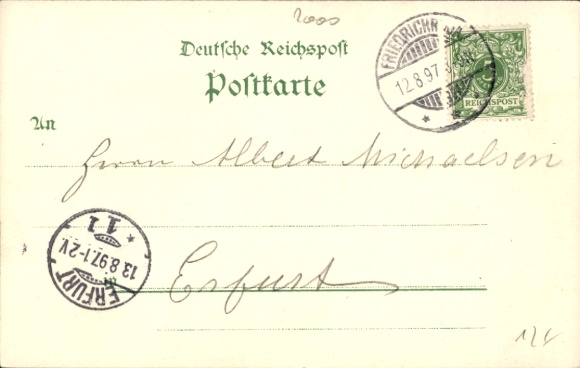 2000
Deutsche Reichspost
Postkarte
12.8.97
REICHSPOST
An
Herrn Albert Michaelsen
Erfurt
ERFURT
13.8.97.1-2V.
11